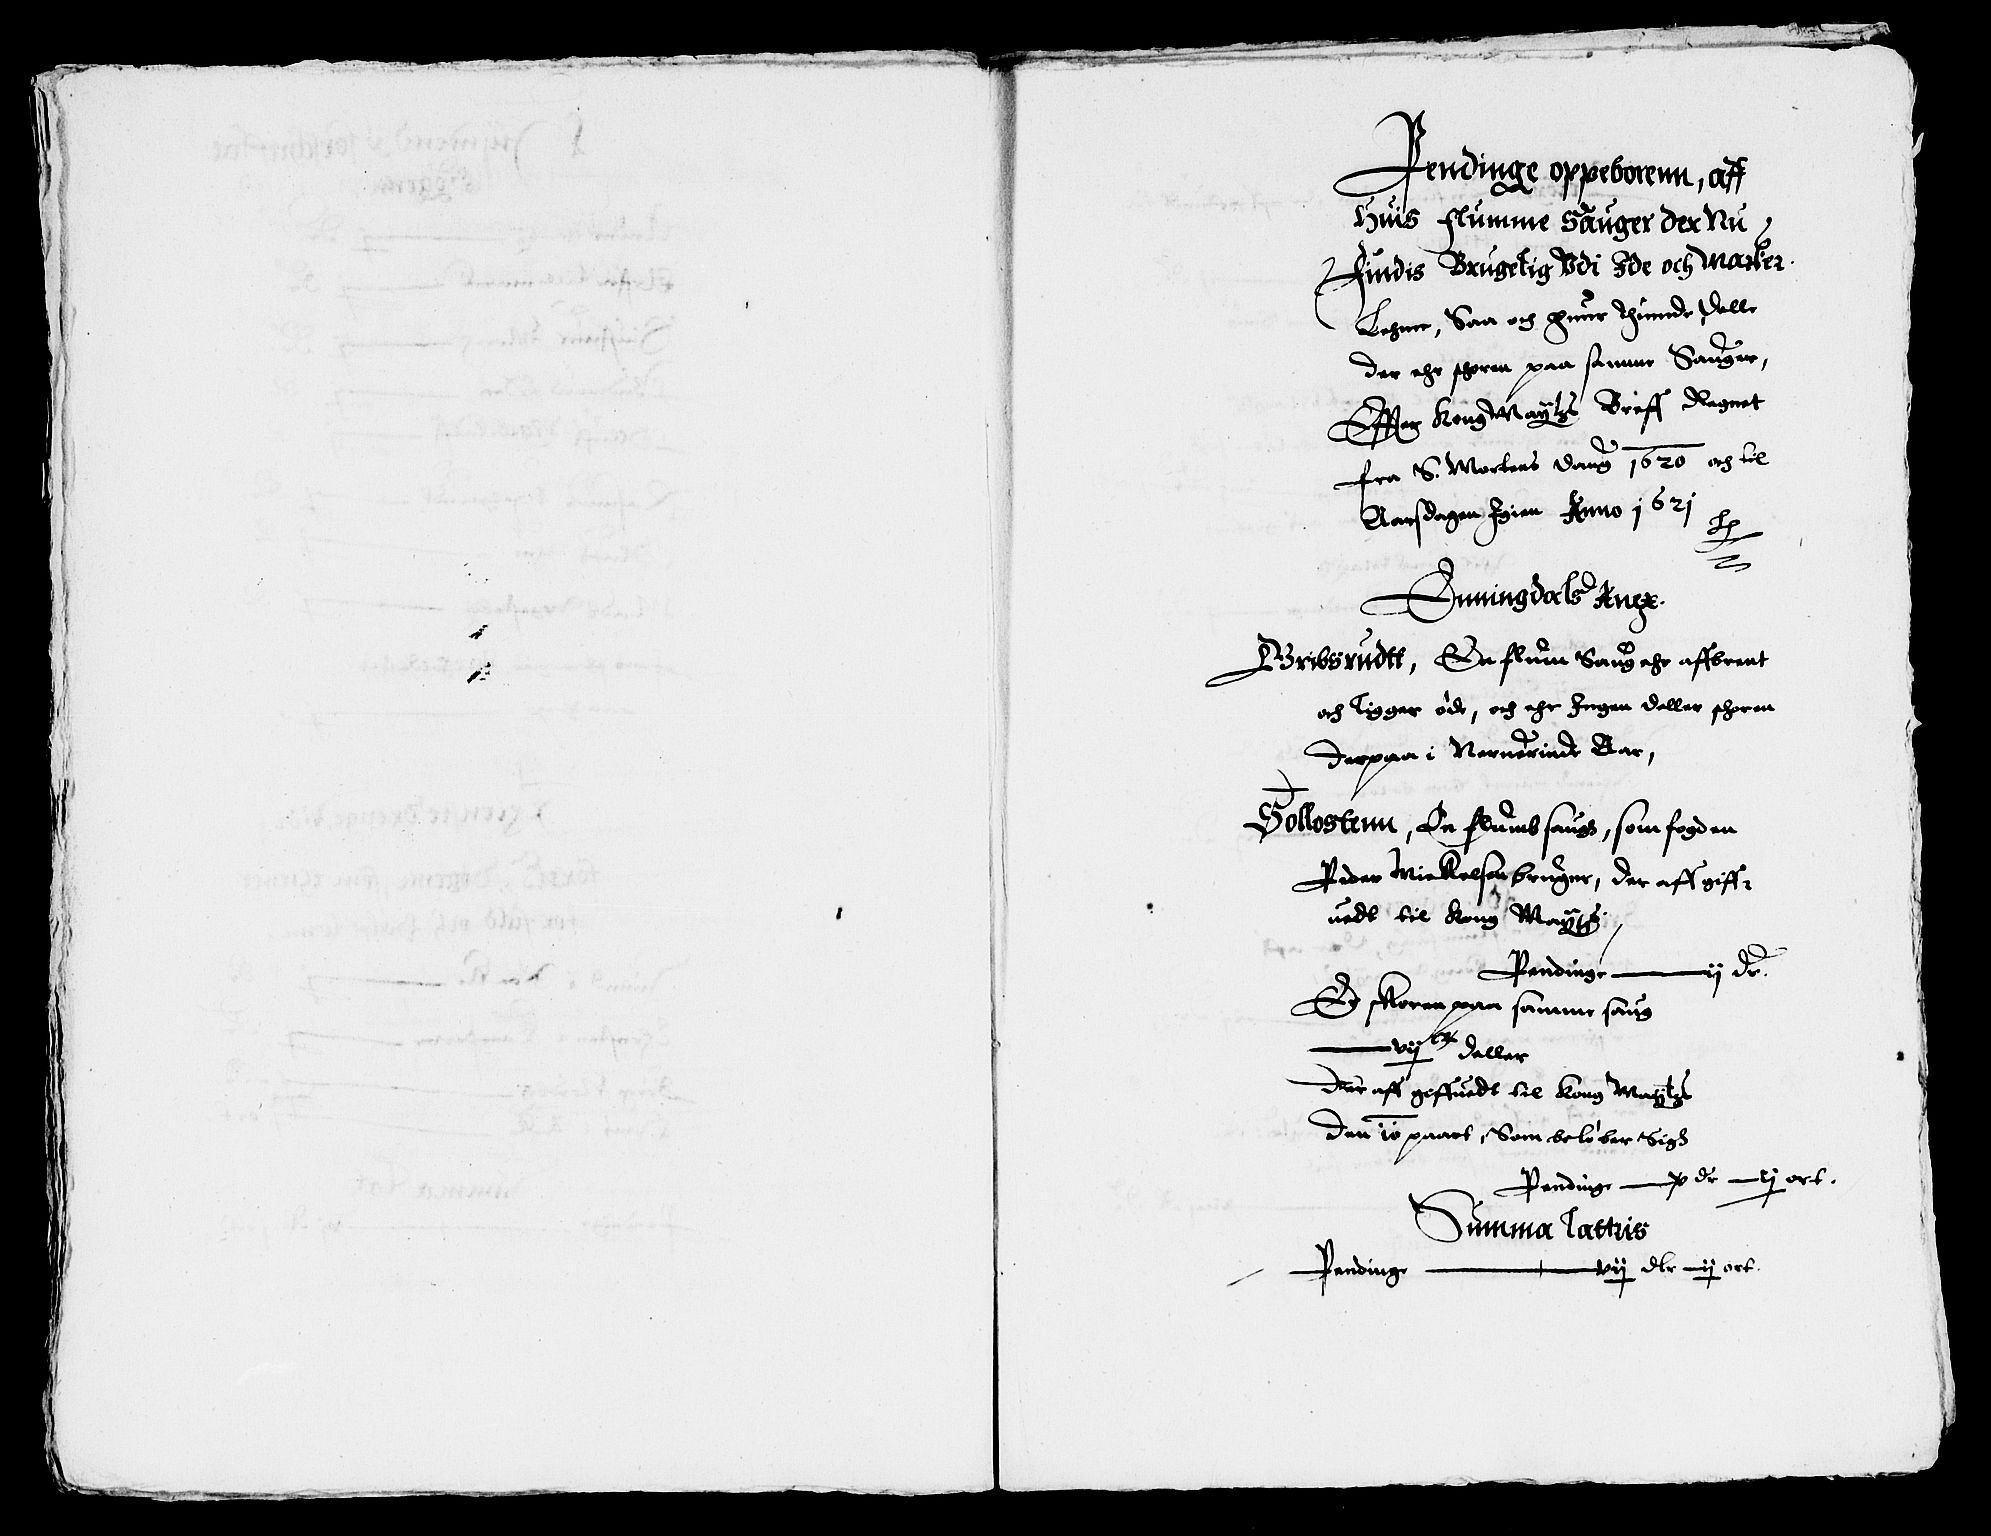 Pendinge oppeborenn, aff
huis flumme Sauger der Nu
findis Brugelig Vdi Ide och Marker
Lehne, Saa och huer thiende Delle
der ehr schoren paa samme Sauger,
Effter Kong Maytz Breff Regnet
fra S. Mortens Daug 1620 och til
Aarsdagen Igien Anno 1621
Enningdals Anex.
Gribsrudtt, En flum Saug ehr affbrent
och ligger øde, och ehr Ingen deller schoren
derpaa i Neruerinde Aar,
Sollostenn, En flumb saug, som fogden
Peder Mickelsen bruger, der aff giff-
uedt til Kong Maytz.
Pendinge — ij dr.
Er skoren paa samme saug
— vij deller
der aff giffuedt til Kong Maytz
den 10 paart, Som beløber Sig
Pendinge — v dr — ij ort.
Summa Lattris
Pendinge — vij dlr — ij ort.